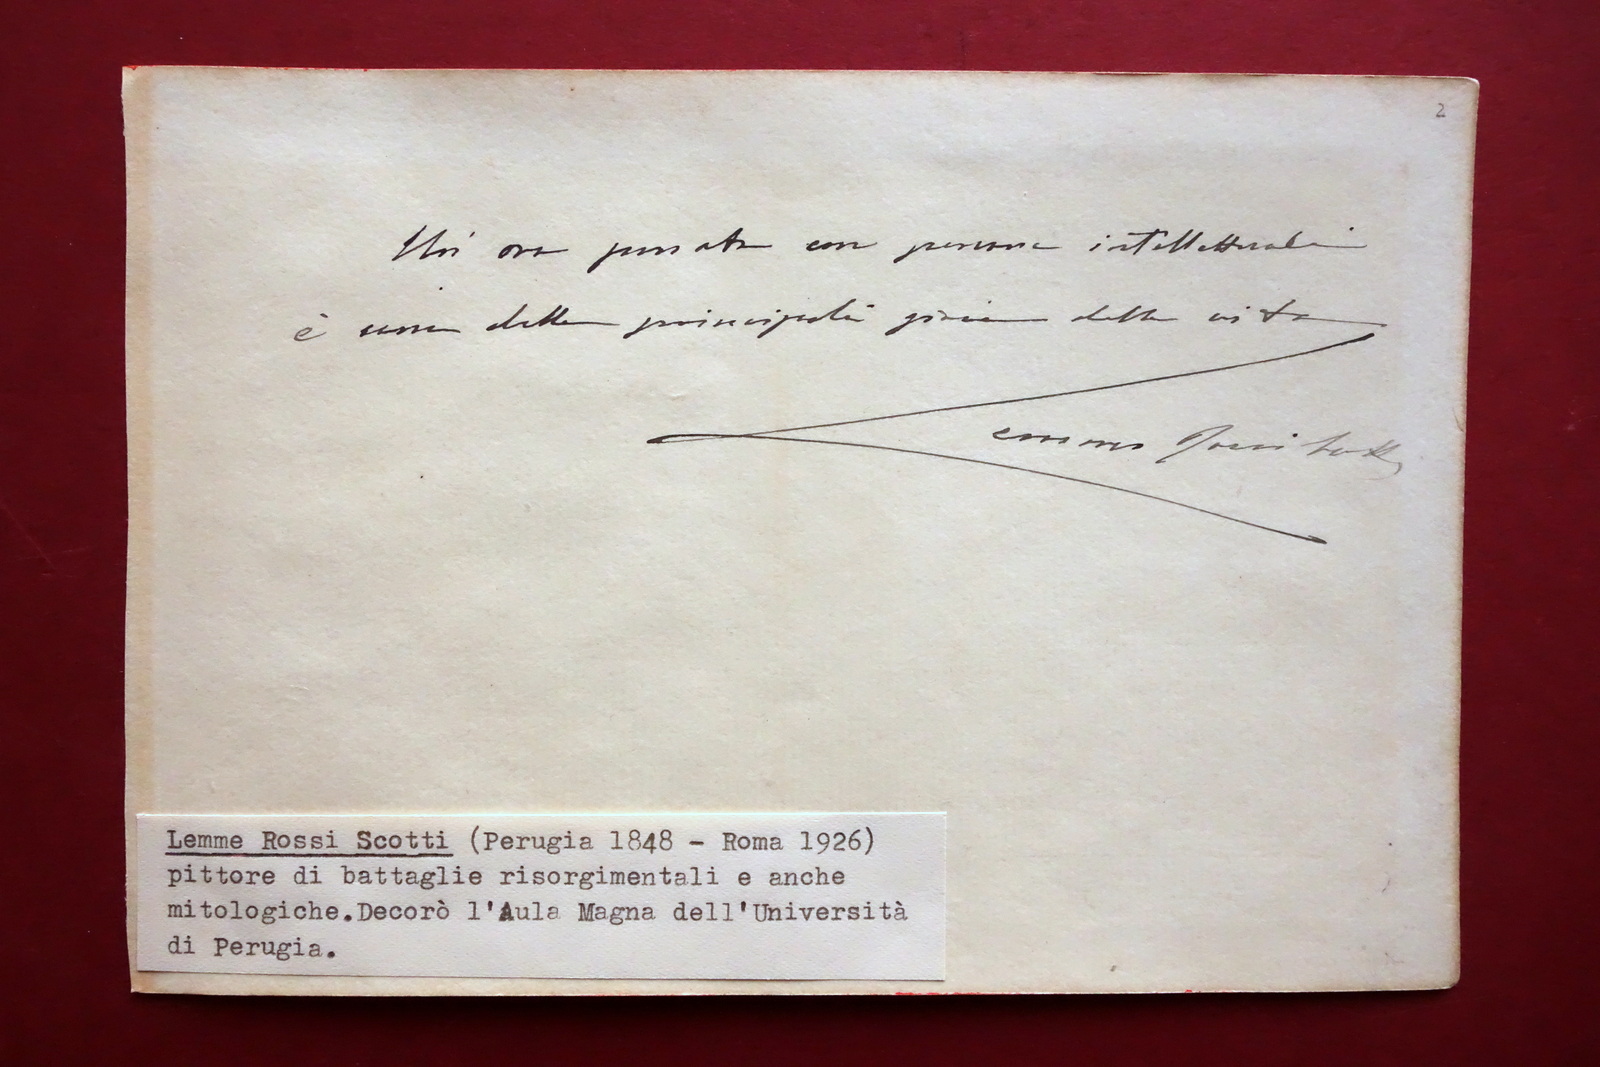 2
Un' ora passata con persone intellettuali
è una delle principali gioie della vita
Lemmo Rossi Scotti
Lemme Rossi Scotti (Perugia 1848 - Roma 1926)
pittore di battaglie risorgimentali e anche
mitologiche.Decorò l'Aula Magna dell'Università
di Perugia.